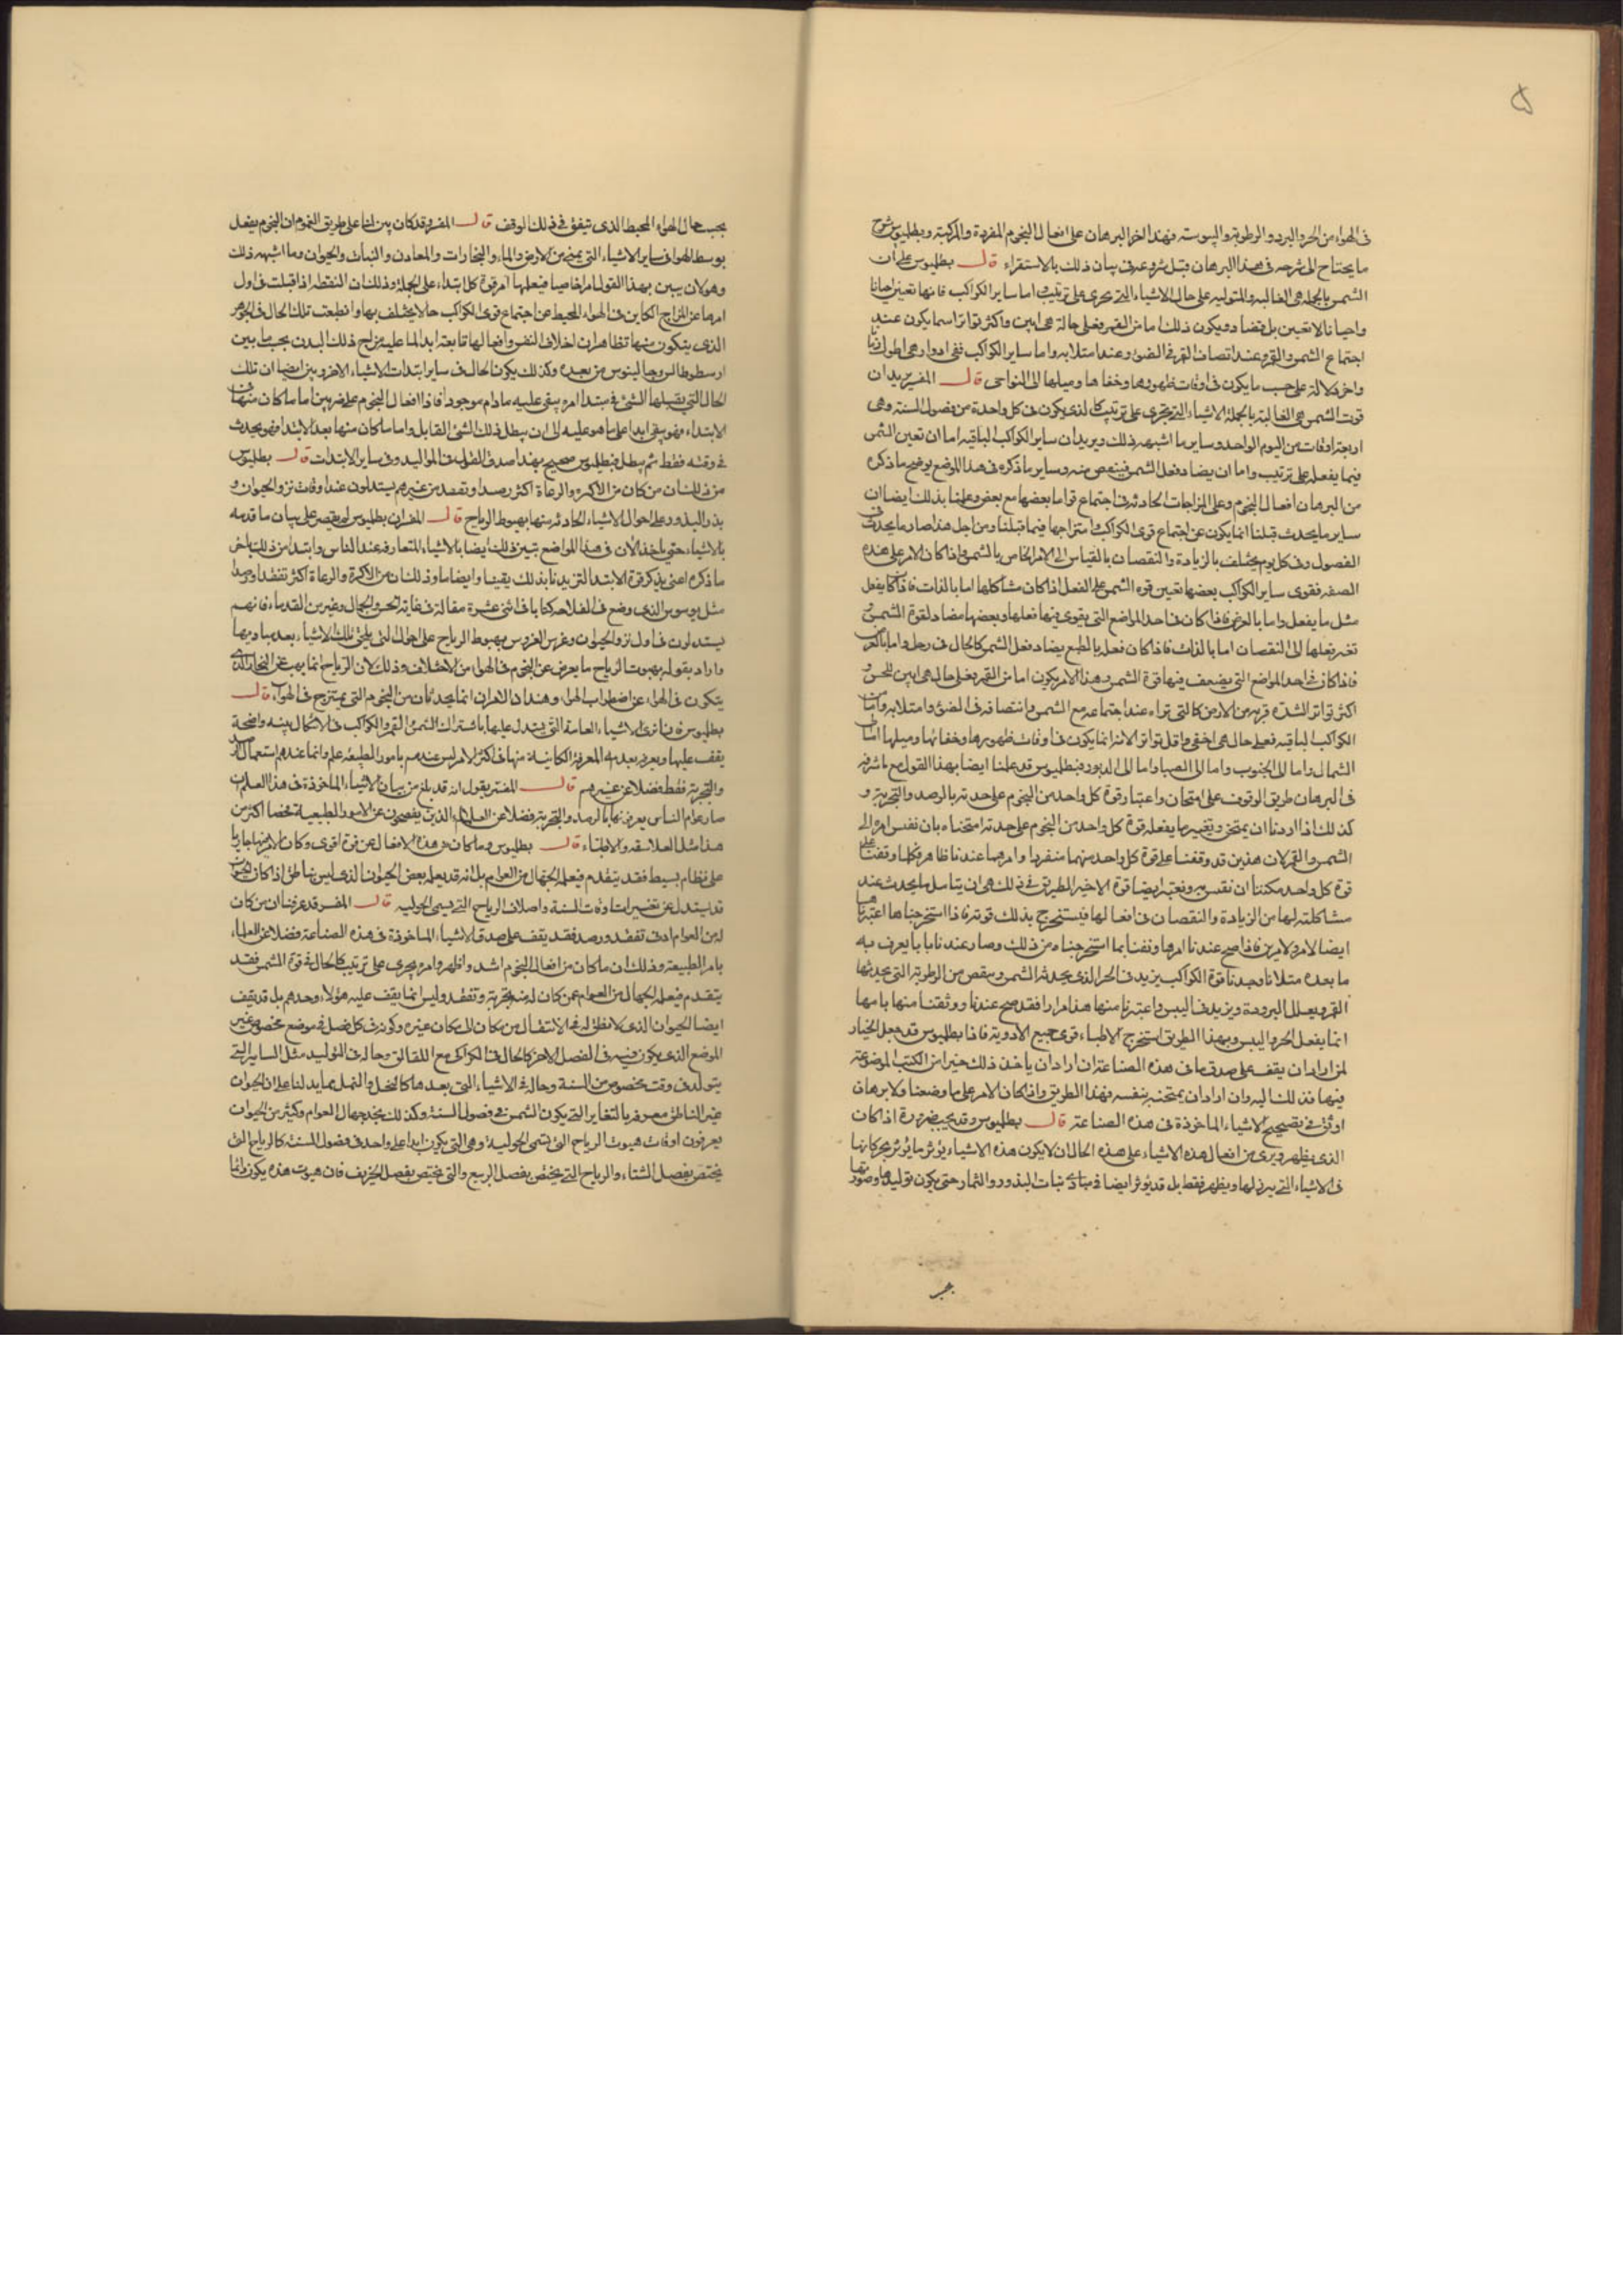 في الهواء من الحر والبرد والرطوبة واليبوسة فهذا اخر البرهان على افعال النجوم المفردة والمركبة وبطلميوس شرح
ما يحتاج الى شرحه في هذا البرهان قبل شروعه في بيان ذلك بالاستقراء قال بطلميوس على ان
الشمس بالجملة هي الغالبة والمتولية على حال الاشياء التي تجري على ترتيب واما ساير الكواكب فانها تعين احيانا
واحيانا لا تعين بل تضاد ويكون ذلك اما من القمر فعلى حالة هي ابين واكثر تواترا سما يكون عند
اجتماع الشمس والقمر وعند انتصاف القمر في الضوء وعند امتلايه واما ساير الكواكب ففي ادوار هي اطول زمانا
واخر دلالة على حسب ما يكون في اوقات ظهورها وخفاها وميلها الى النواحي قال المفسر يريد ان
قوت الشمس هي الغالبة بالجملة الاشياء التي تجري على ترتيب كالذي يكون في كل واحدة من فصول السنة وهي
اربعة اوقات من اليوم الواحد وساير ما اشبه ذلك ويريد ان ساير الكواكب الباقية اما ان تعين الشمس
فيما يفعله على ترتيب واما ان يضاد فعل الشمس فينقص منه وساير ما ذكره في هذا الموضع يوضح ما ذكره
من البرهان افعال النجوم وعلى المزاجات الحادثة في اجتماع قواها بعضها مع بعض وعلمنا بذلك ايضا ان
ساير ما يحدث قبلنا انما يكون عن اجتماع قوى الكواكب وامتزاجها فيما قبلنا ومن اجل هذا صار ما يحدث في
الفصول وفي كل يوم يختلف بالزيادة والنقصان بالقياس الى الامر الخاص بالشمس واذا كان الامر على هذه
الصفة فقوى ساير الكواكب بعضها تعين قوه الشمس على الفعل اذا كان مشاكلها اما بالذات فاذا كان يفعل
مثل ما يفعل واما بالعرض فاذا كان في احد المواضع التي يقوى فيها فعلها وبعضها مضاد لقوة الشمس و
تغير فعلها الى النقصان اما بالذات فاذا كان فعله بالطبع يضاد فعل الشمس كالحال في زحل واما بالعرض
فاذا كان في احد المواضع التي يضعف فيها قوة الشمس وهذا الامر يكون اما من القمر فعلى حال هي ابين للحس و
اكثر تواتر الشدة قربه من الارض كالتي تراه عند اجتماعه مع الشمس وانتصافه في الضوء وامتلايه واما من
الكواكب الباقية فعلى حال هي اخفى واقل تواتر لان انما يكون في اوقات ظهورها وخفائها وميلها اما الى
الشمال واما الى الجنوب واما الى الصبا واما الى الدبور فبطلميوس قد علمنا ايضا بهذا القول مع ما شرفه
في البرهان طريق الوقوف على امتحان واعتبار قوة كل واحد من النجوم على حدته بالرصد والتجربة و
كذلك اذا اردنا ان نمتحن وتغيير ما يفعله قوة كل واحد من النجوم على حدته امتحناه بان نفس امره الى
الشمس والقمر لان هذين قد وقفنا على قوة كل واحد منهما منفردا وامرهما عندنا ظاهر فكلما وقفنا على
قوة كل واحد مكننا ان نقس به ونعتبر ايضا قوة الاخير الطريق في ذلك هي ان يتامل ما يحدث عند
مشاكلته لها من الزيادة والنقصان في افعالها فيستخرج بذلك قوته فاذا استخرجناها اعتبرناها
ايضا لامر ولامرين فاذا صح عندنا امرها وثقنا بما استخرجناه من ذلك وصار عندنا بابا يعرف به
ما بعده مثلا نا وجدنا قوة الكواكب يزيد في الحر الذي يحدثه الشمس وينقص من الرطوبة التي يحدثها
القمر ويعلل البرودة ويزيد في اليبس واعتبرنا منها هذا مرارا فقد صح عندنا ووثقنا منها بامها
انما يفعل الحر واليبس وبهذا الطريق استخرج الاطباء قوى جميع الادوية فاذا بطلميوس قد جعل الخيار
لمن اراد ان يقف على صدق ما في هذه الصناعة ان اراد ان ياخذ ذلك خبرا من الكتب الموضوعة
فيها فذلك اليه وان اراد ان يمتحنه بنفسه فهذا الطريق واذا كان الامر على ما وضعنا ولا برهان
اوثق في تصحيح الاشياء الماخوذة في هذه الصناعة قال بطلميوس وقد يجب ضرورة اذا كان
الذي يظهر ويرى من افعال هذه الاشياء على هذه الحال ان لا يكون هذه الاشياء يؤثر ما يؤثر بحركاتها
في الاشياء التي يبرز لها ويظهر فقط بل قد يؤثر ايضا في مبادئ نبات البذور والثمار حتى يكون توليدها وصورتها
بحسب حال الهواء المحيط الذي يتيفق في ذلك الوقف قال المفسر قد كان بين لنا على طريق العموم ان النجوم يفعل
بوسط الهواء في ساير الاشياء التي يمتزج من الارض والماء والبخارات والمعادن والنبات والحيوان وما اشبه ذلك
وهو لان يبين بهذا القول امرا خاصيا فيعلمها امر قوة كل ابتداء على الجملة وذلك ان النقطه اذا قبلت في اول
امرها عن المزاج الكاين في الهواء المحيط عن اجتماع قوى الكواكب حالا يختلف بها وانطبعت تلك الحال في الجوهر
الذي يتكون منها تظاهر ان اخلاق النفس وافعالها تابعة ابدا لما عليه مزاج ذلك البدن بحسب ما بين
ارسطوطالس وجالينوس من بعده وكذلك يكون الحال في ساير ابتدات الاشياء الاخر وبين ايضا ان تلك
الحال التي يقبلها الشئ في مبتدا امره يبقى عليه ما دام موجودا فاذا افعال النجوم على ضربين اما ما كان منها في
الابتداء فهو يبقى ابدا على ما هو عليه الى ان يبطل ذلك الشئ القابل واما ما كان منها بعد الابتدا فهو يحدث
في وقته فقط ثم يبطل فبطلميوس صحح بهذا صدق القول في المواليد وفي ساير الابتدات قال بطلميوس
من ذلك ان من كان من الاكرة والرعاة اكثر رصدا وتفقد من غيرهم يستدلون عند اوقات نزو الحيوان و
بذر البذور وعلى احوال الاشياء الحادثة منها بهبوط الرياح قال المفسر ان بطلميوس لم يقتصر على بيان ما قدمه
بالاشياء حتى ياخذ الان في هذا المواضع تبين ذلك ايضا بالاشياء المتعارفه عند الناس وابتدا من ذلك باخر
ما ذكره اعني بذكر قوة الابتدا لتزيدنا بذلك يقينا وايضا ما وذلك ان من الاكرة والرعاة اكثر تفقدا ورصدا
الذي وضع في الفلاحه كتابا في اثنى عشرة مقالة في غاية الحسن والجمال وغيره من القدماء فانهم
يستدلون في اول نزو الحيوان وغرس الغروس بهبوط الرياح على احوال التي يلحق تلك الاشياء بعد مبادئها
واراد بقوله بهبوت الرياح ما يعرض عن النجوم في الهواء من الاختلاف وذلك لان الرياح انما يهب عن البخار الذي
يتكون في الهواء عن اضطراب الهواء وهذان الامران انما يحدثان من النجوم التي يمتزج في الهواء قال
بطلميوس فانا نرى الاشياء العامة التي يستدل عليها باشتراك الشمس والقمر والكواكب في الاشكال بينه واضحة
يقف عليها ويعرف بعد مه المعرفة الكاينة منها في اكثر الامر ليس عندهم بامور الطبيعة علم وانما عندهم استعمال الرصد
والتجربة فقط فضلا عن غيرهم قال المفسر يقول انه قد بلغ من بيان الاشياء الماخوذة في هذا العلم ان
صار عوام الناس يعرفونها بالرصد والتجربة فضلا عن العلماء الذين يفحصون عن الامور الطبيعية فحصا اكثر من
هذا مثل الفلاسفه والاطباء قال بطلميوس وما كان من هذه الافعال عن قوة اقوى وكان الامر فيها جاريا
على نظام بسيط فقد يتقدم فيعلمه الجهال من العوام بل انه قد يعلمه بعض الحيوان الذي ليس بناطق اذا كان الحيوان
قد يستدل عن تغيير اوقات السنة واصلاف الرياح التي يسمى الحولية قال المفسر قد عرفنا ان من كان
له من العوام ادنى تفقد ورصد فقد يقف على صدق الاشياء الماخوذة في هذه الصناعة فضلا عن العلماء
بامر الطبيعة وذلك ان ما كان من افعال النجوم اشد واظهر وامره يجري على ترتيب كالحال في قوة الشمس فقد
يتقدم فيعلمه الجهال من العوام عمن كان له منه تجربة وتفقد وليس انما يقف عليه هؤلاء وحدهم بل قد يقف
ايضا الحيوان الذي لا نطق له في الانتقال من مكان الى مكان غيره وكونه في كل فصل في موضع مخصوص غير
الموضع الذي يكون فيه في الفصل الاخر كالحال في الكراكي مع اللقالق وحاله في التوليد مثل الساير التي
يتولد في وقت مخصوص من السنة وحاله في الاشياء التي بعدها كالنحل والنمل مما يدلنا على ان الحيوان
غير الناطق معرفة بالتغاير التي يكون للشمس في فصول السنة وكذلك نجد جهال العوام وكثير من الحيوان
يعرفون اوقات هبوب الرياح التي تسمى الحولية وهي التي يكون ابدا على واحد في فصول السنة كالرياح التي
يختص بفصل الشتاء والرياح التي يختص بفصل الربيع والتي يختص بفصل الخريف فان هبوب هذه يكون دائما